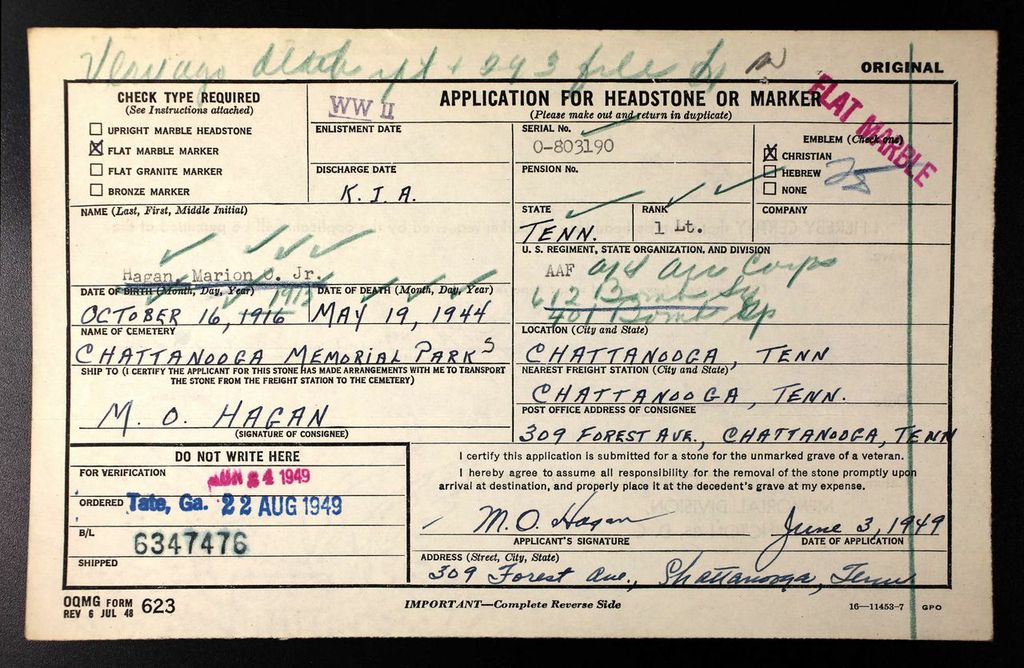 ORIGINAL
CHECK TYPE REQUIRED
(See Instructions attached)
UPRIGHT MARBLE HEADSTONE
FLAT MARBLE MARKER
FLAT GRANITE MARKER
BRONZE MARKER
WW II
ENLISTMENT DATE
DISCHARGE DATE
K. I. A.
APPLICATION FOR HEADSTONE OR MARKER
(Please make out and return in duplicate)
FLAT MARBLE
SERIAL No.
O-803190
PENSION No.
EMBLEM (Check one)
CHRISTIAN
HEBREW
NONE
NAME (Last, First, Middle Initial)
Hagan, Marion O. Jr.
STATE
TENN.
RANK
1 Lt.
COMPANY
U. S. REGIMENT, STATE ORGANIZATION, AND DIVISION
AAF
612 Bomb Sq
401 Bomb Gp
DATE OF BIRTH (Month, Day, Year)
OCTOBER 16, 1916
DATE OF DEATH (Month, Day, Year)
MAY 19, 1944
NAME OF CEMETERY
CHATTANOOGA MEMORIAL PARKS
LOCATION (City and State)
CHATTANOOGA, TENN
SHIP TO (I CERTIFY THE APPLICANT FOR THIS STONE HAS MADE ARRANGEMENTS WITH ME TO TRANSPORT
THE STONE FROM THE FREIGHT STATION TO THE CEMETERY)
M. O. HAGAN
(SIGNATURE OF CONSIGNEE)
NEAREST FREIGHT STATION (City and State)
CHATTANOOGA, TENN.
POST OFFICE ADDRESS OF CONSIGNEE
309 FOREST AVE., CHATTANOOGA, TENN
DO NOT WRITE HERE
FOR VERIFICATION
1949
ORDERED Tate, Ga. 22 AUG 1949
B/L
6347476
SHIPPED
I certify this application is submitted for a stone for the unmarked grave of a veteran.
I hereby agree to assume all responsibility for the removal of the stone promptly upon
arrival at destination, and properly place it at the decedent's grave at my expense.
M.O. Hagan
June 3, 1949
APPLICANT'S SIGNATURE
DATE OF APPLICATION
ADDRESS (Street, City, State)
309 Forest Ave., Chattanooga, Tenn
OQMG FORM 623
REV 6 JUL 48
IMPORTANT—Complete Reverse Side
16—11453-7 GPO